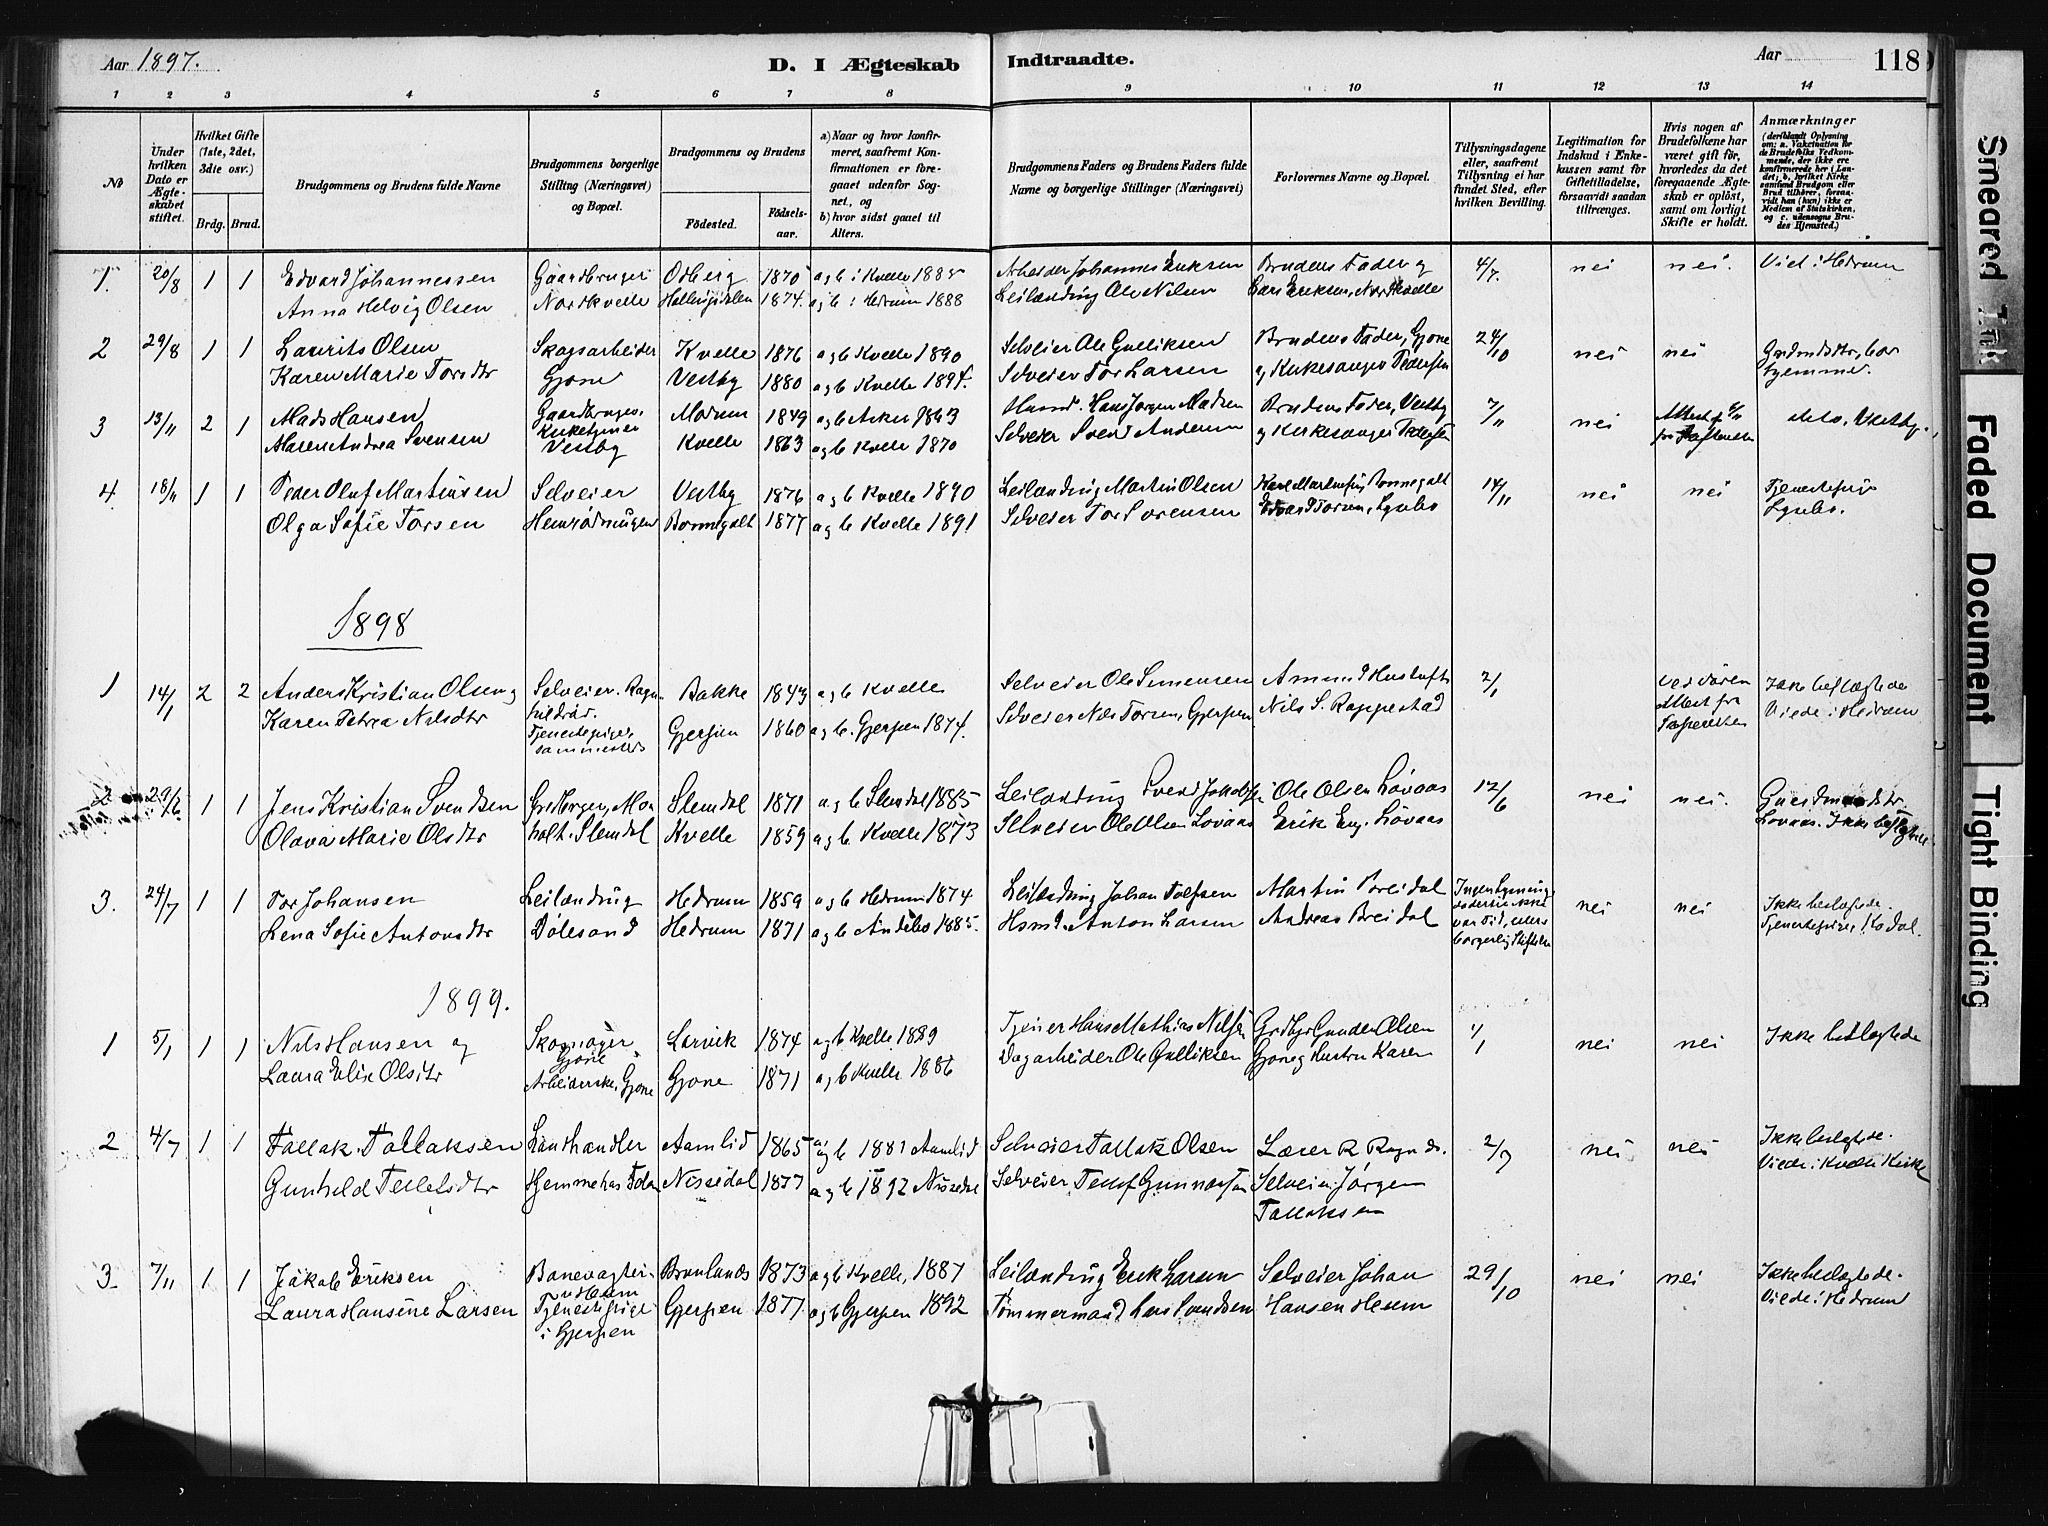 Aar 1897.
D. I Ægteskab Indtraadte.
Aar
118
1 2 3 4 5 6 7 8 9 10 11 12 13 14
No
Under hvilken Dato er Ægteskabet stiftet.
Hvilket Gifte (1ste, 2det, 3die osv.)
Brdg. Brud.
Brudgommens og Brudens fulde Navne
Brudgommens borgerlige Stilling (Næringsvei) og Bopæl.
Brudgommens og Brudens
Fødested.
Fødselsaar.
a) Naar og hvor konfirmeret, saafremt Konfirmationen er foregaaet udenfor Sognet, og
b) hvor sidst gaaet til Alters.
Brudgommens Faders og Brudens Faders fulde Navne og borgerlige Stillinger (Næringsvei)
Forlovernes Navne og Bopæl.
Tillysningsdagene eller, saafremt Tillysning ei har fundet Sted, efter hvilken Bevilling.
Legitimation for Indskud i Enkekassen samt for Giftetilladelse, forsaavidt saadan tiltrænges.
Hvis nogen af Brudefolkene har været gift før, hvorledes da det foregaaende Ægteskab er opløst, samt om lovligt Skifte er holdt.
Anmærkninger
(deriblandt Oplysning om: a. Vaksination for de Brudefolks Vedkommende, der ikke ere konfirmerede her i Landet; b. hvilket Kirkesamfund Brudgom eller Brud tilhører, forsaavidt han (hun) ikke er Medlem af Statskirken, og c. udensogns Brudes Hjemsted.)
1. 20/8 1 1 Edvard Johannessen Gaardbruger Odberg 1870 a og b i Kvelle 1885 Arbeider Johannes Eriksen Brudens Fader og 4/7. nei nei. Viet i Hedrum
Anna Helvig Olsen Nordkvelle 1874. a og b i Hedrum 1888 Leilænding Ole Nilsen Lars Eriksen, Nordkvelle
2 29/8 1 1 Laurits Olsen Skogsarbeider Kvelle 1876 a og b Kvelle 1890 Selveier Ole Gulliksen Brudens Fader, Gjone 24/10 nei nei
Karen Marie Torsdtr Gjone Vestby 1880 a og b Kvelle 1894. Selveier Tor Larsen og Kirkesanger Pedersen hjemme.
3 13/11 2 1 Mads Hansen Gaardbruger, Modum 1849 a og b Asker 1863 Husmd. Hans Jørgen Madsen Brudens Fader, Vestby 7/11 nei
Maren Andrea Svensen Kirketjener Vestby Kvelle 1863 a og b Kvelle 1870 Selveier Svend Andersen og Kirkesanger Pedersen
4. 18/11 1 1 Peder Oluf Martinsen Selveier Vestby 1876 a og b Kvelle 1890 Leilænding Martin Olsen Bonnegolt 14/11 nei nei Tjenestepige
Olga Sofie Torsen Bonnegolt 1877 a og b Kvelle 1891 Selveier Tor Sorensen Edvard Torsen, Lysebo Lysebo.
1898
1 14/1 2 2 Anders Kristian Olsen og Selveier. Ragnhildrød. Bakke 1843 a og b Kvelle Selveier Ole Simensen 2/1 Ikke beslægtede
Karen Petrea Nilsdtr Tjenestepige, sammesteds Gjerpen 1860 a og b. Gjerpen 1874. Selveier Nils Torsen, Gjerpen Nils S. Rappestad Attest fra Skifteretten Viede i Hedrum
2 29/6 1 1 Jens Kristian Svendsen Slemdal 1871 a og b Slemdal 1885 Leilænding Svend Jakobsen Ole Olsen Løvaas 12/6 nei nei. Gaardmandsdtr.
Olava Marie Olsdtr Slemdal Kvelle 1859 a og b Kvelle 1873 Selveier Ole Olsen Løvaas Erik Eng. Løvaas Løvaas. Ikke beslægtede.
3. 24/7 1 1 Tor Johansen Leilænding Hedrum 1859 a og b Hedrum 1874 Leilænding Johan Tolfsen Martin Breidal nei nei Ikke beslægtede.
Lena Sofie Antonsdtr Dølesand Hedrum 1871 a og b Andebo 1885. Hsmd. Anton Larsen Andreas Breidal Tjenestepige, Kodal.
1899.
1 5/1 1 1 Nils Hansen og Gjone Larvik 1874 a og b Kvelle 1889 Tjener Hans Mathias Nilsen Grdbgr Gunder Olsen 1/1 nei nei Ikke beslægtede
Laura Elise Olsdtr Arbeiderske, Gjone Gjone 1871 a og b Kvelle 1886 Dagarbeider Ole Gulliksen Gjone og Hustru Karen
2 4/7 1 1 Tallak Tallaksen Landhandler Aamlid 1865 a og b 1881 Aamlid Selveier Tallak Olsen Lærer R. 2/7 nei nei Ikke beslægtede.
Gunhild Tellefsdtr Hjemme Nissedal 1877 a og b 1892 Nissedal Selveier Tellef Gunnarsen Selveier Jørgen Tallaksen Viede i Kvelle Kirke
3 7/11 1 1 Jakob Eriksen Banevagter Brunlanes 1873 a og b Kvelle, 1887 Leilænding Erik Larsen Selveier Johan 29/10 nei nei Ikke beslægtede.
Laura Hansine Larsen Tjenestepige i Gjerpen Gjerpen 1877. a og b Gjerpen 1892 Tømmermand Lars Svendsen Hansen Hesem Viede i Hedrum
Smeared Ink
Faded Document
Tight Binding